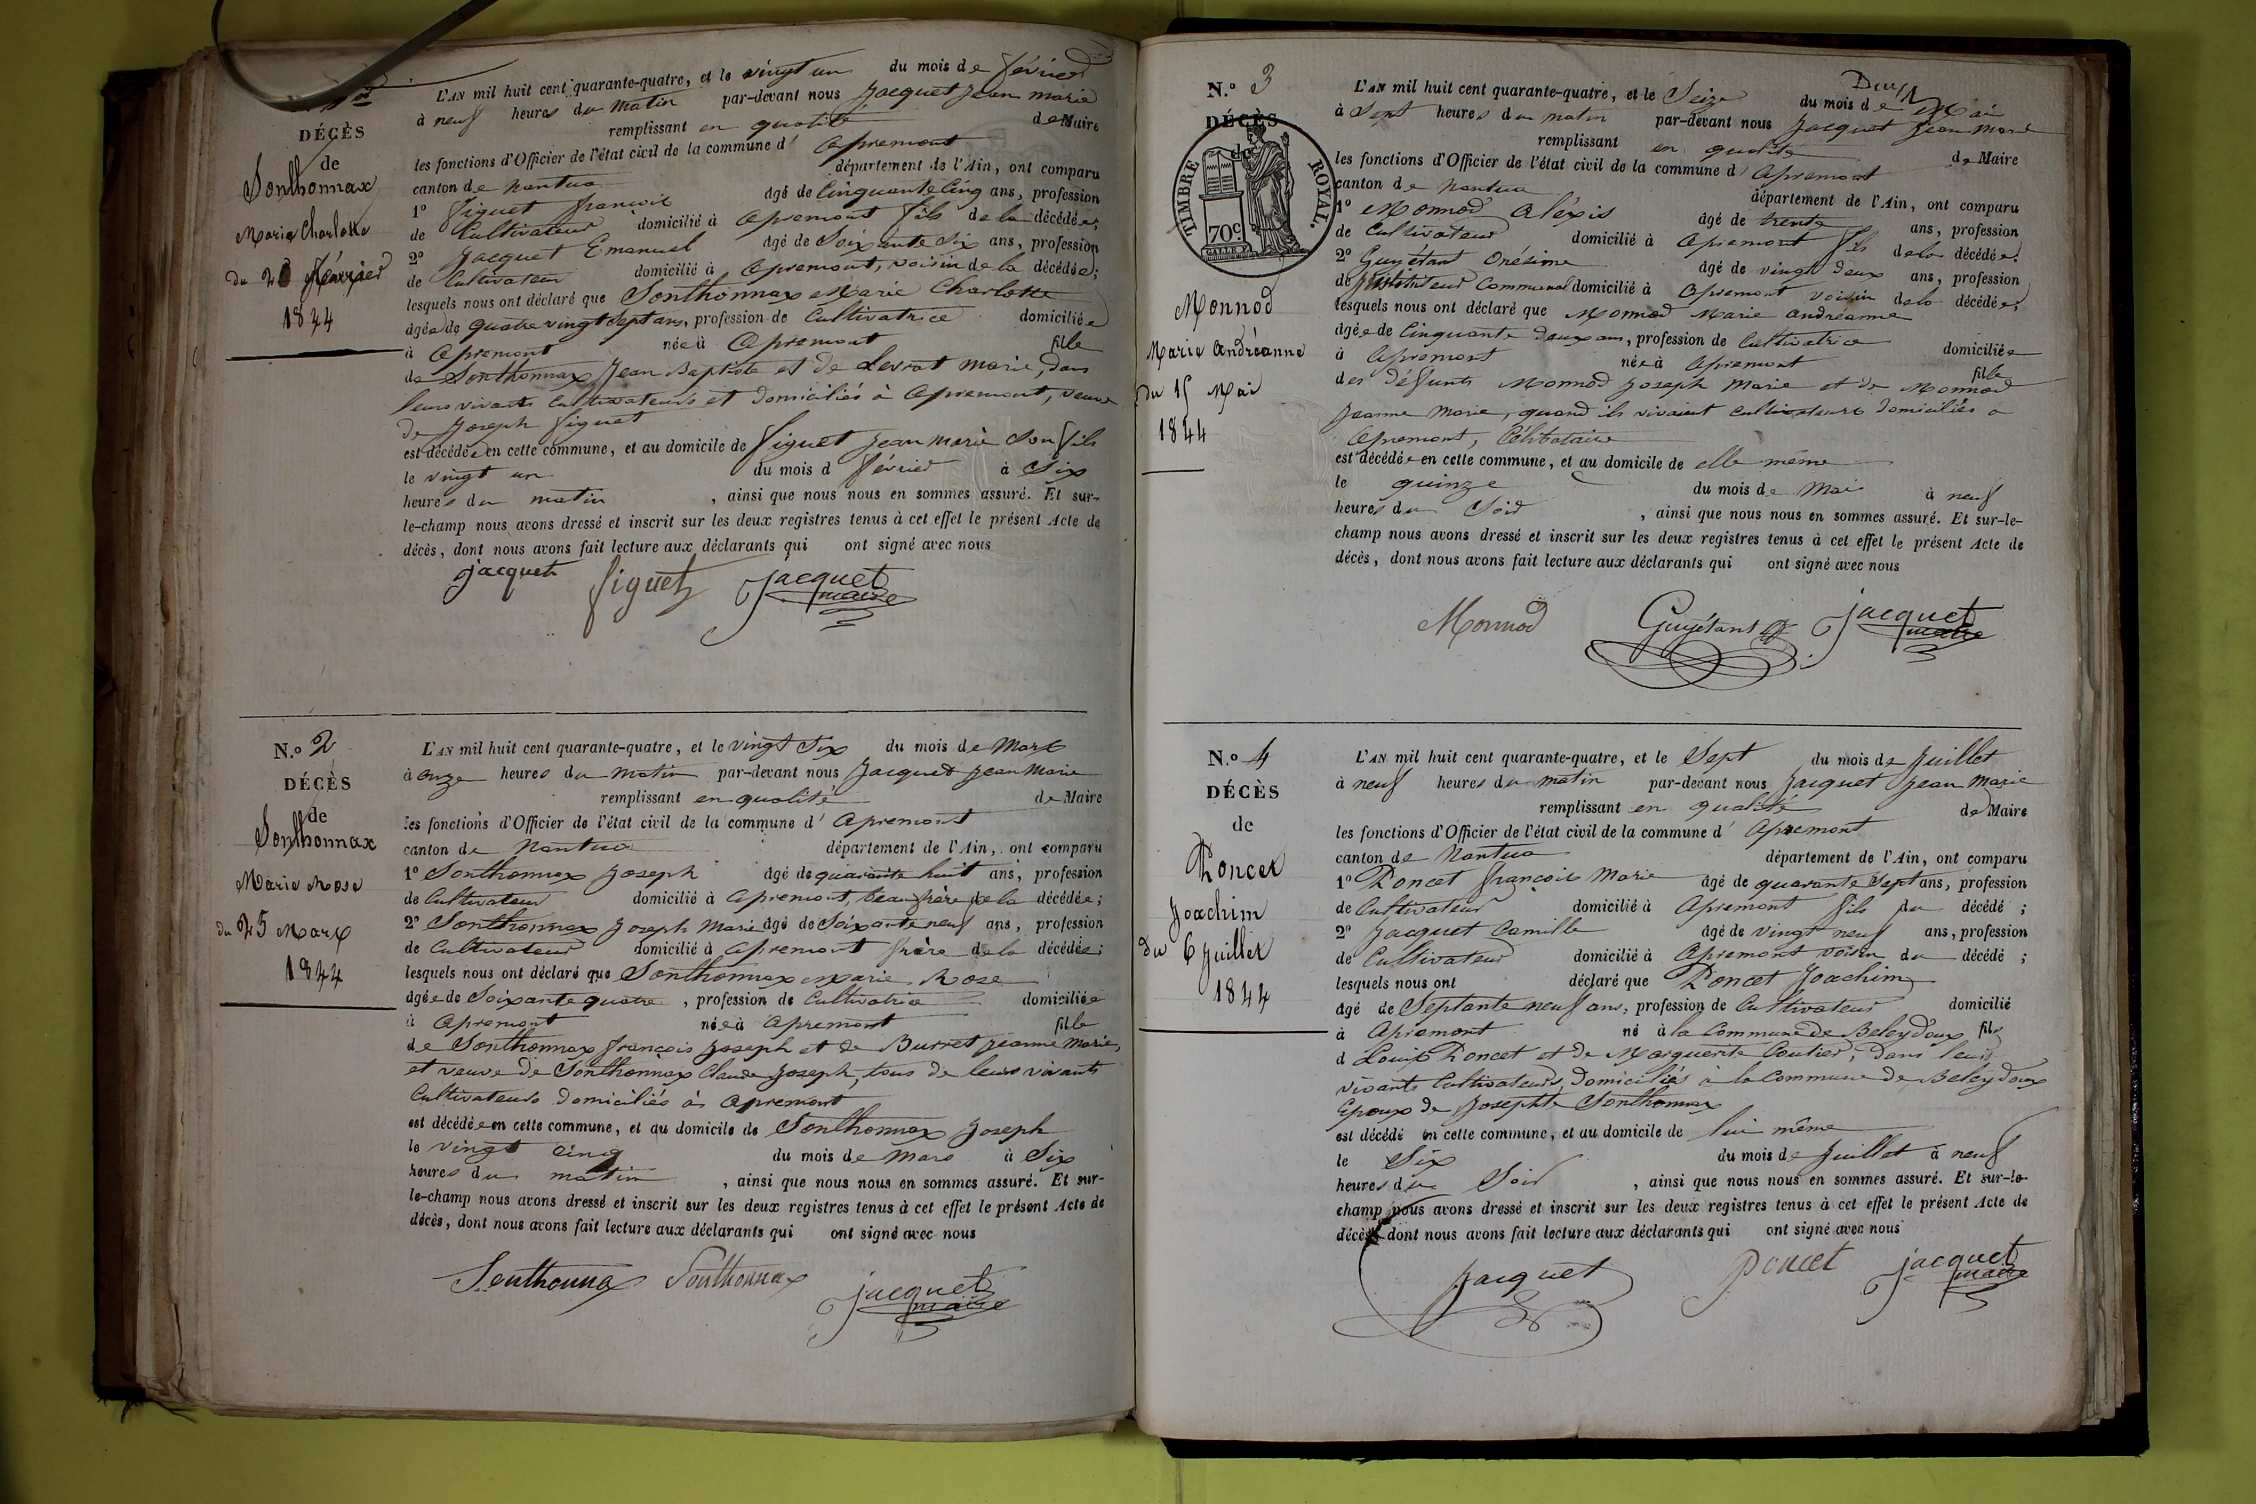 DÉCÈS
de
Sonthonnax
Marie Charlotte
du 20 Février
1844
L'AN mil huit cent quarante-quatre, et le vingt un du mois de février
à neuf heures du matin par-devant nous Jacquet Jean Marie
remplissant en qualité de Maire
les fonctions d'Officier de l'état civil de la commune d' Apremont
canton de Nantua département de l'Ain, ont comparu
1° Figuet françois âgé de Cinquante Cinq ans, profession
de Cultivateur domicilié à Apremont fils de la décédée;
2° Jacquet Emanuel âgé de Soixante Six ans, profession
de Cultivateur domicilié à Apremont, voisin de la décédée;
lesquels nous ont déclaré que Sonthonnax Marie Charlotte
âgée de quatre vingt Sept ans, profession de Cultivatrice domiciliée
à Apremont née à Apremont fille
de Sonthonnax Jean Baptiste et de Levrat Marie, dans
leurs vivants Cultivateurs et domiciliés à Apremont, veuve
de Joseph figuet
est décédée en cette commune, et au domicile de figuet Jean Marie Son fils
le vingt un du mois d février à Six
heures du matin , ainsi que nous nous en sommes assuré. Et sur-
le-champ nous avons dressé et inscrit sur les deux registres tenus à cet effet le présent Acte de
décès, dont nous avons fait lecture aux déclarants qui ont signé avec nous
jacquet figuet jacquet
maire
N.° 2
DÉCÈS
de
Sonthonnax
Marie Rose
du 25 Mars
1844
L'AN mil huit cent quarante-quatre, et le vingt Six du mois de Mars
à onze heures du matin par-devant nous Jacquet Jean Marie
remplissant en qualité de Maire
les fonctions d'Officier de l'état civil de la commune d' Apremont
canton de Nantua département de l'Ain, ont comparu
1° Sonthonnax Joseph âgé de quarante huit ans, profession
de Cultivateur domicilié à Apremont, beau frère de la décédée;
2° Sonthonnax Joseph Marie âgé de Soixante neuf ans, profession
de Cultivateur domicilié à Apremont frère de la décédée;
lesquels nous ont déclaré que Sonthonnax Marie Rose
âgée de Soixante quatre , profession de Cultivatrice domiciliée
à Apremont née à Apremont fille
de Sonthonnax françois Joseph et de Burret Jeanne Marie,
et veuve de Sonthonnax Claude Joseph, tous de leurs vivants
Cultivateurs domiciliés à Apremont
est décédée en cette commune, et au domicile de Sonthonnax Joseph
le vingt cinq du mois de Mars à Six
heures du matin , ainsi que nous nous en sommes assuré. Et sur-
le-champ nous avons dressé et inscrit sur les deux registres tenus à cet effet le présent Acte de
décès, dont nous avons fait lecture aux déclarants qui ont signé avec nous
Sonthonnax Sonthonnax jacquet
maire
N.° 3
DÉCÈS
de
TIMBRE ROYAL.
70c
Monnod
Marie Andréanne
du 15 Mai
1844
L'AN mil huit cent quarante-quatre, et le Seize du mois de Mai
à Sept heures du matin par-devant nous Jacquet Jean Marie
remplissant en qualité de Maire
les fonctions d'Officier de l'état civil de la commune d' Apremont
canton de Nantua département de l'Ain, ont comparu
1° Monnod Aléxis âgé de trente ans, profession
de Cultivateur domicilié à Apremont fils de la décédée;
2° Guyétant Onésime âgé de vingt deux ans, profession
de Instituteur Communal domicilié à Apremont voisin de la décédée;
lesquels nous ont déclaré que Monnod Marie Andréanne
âgée de Cinquante deux ans, profession de Cultivatrice domiciliée
à Apremont née à Apremont fille
des défunts Monnod Joseph Marie et de Monnod
Jeanne Marie, quand ils vivaient Cultivateurs domiciliés a
Apremont, Célibataire
est décédée en cette commune, et au domicile de elle même
le quinze du mois de Mai à neuf
heures du Soir , ainsi que nous nous en sommes assuré. Et sur-le-
champ nous avons dressé et inscrit sur les deux registres tenus à cet effet le présent Acte de
décès, dont nous avons fait lecture aux déclarants qui ont signé avec nous
Monnod Guyétant jacquet
maire
N.° 4
DÉCÈS
de
Poncet
Joachim
du 6 Juillet
1844
L'AN mil huit cent quarante-quatre, et le Sept du mois de Juillet
à neuf heures du matin par-devant nous Jacquet Jean Marie
remplissant en qualité de Maire
les fonctions d'Officier de l'état civil de la commune d' Apremont
canton de Nantua département de l'Ain, ont comparu
1° Poncet françois Marie âgé de quarante Sept ans, profession
de Cultivateur domicilié à Apremont fils du décédé ;
2° Jacquet Camille âgé de vingt neuf ans, profession
de Cultivateur domicilié à Apremont voisin du décédé ;
lesquels nous ont déclaré que Poncet Joachim
âgé de Septante neuf ans, profession de Cultivateur domicilié
à Apremont né à la Commune de Beleydoux fils
d Louis Poncet et de Marguerite Coutier, dans leurs
vivants Cultivateurs, Domiciliés à la Commune de Beleydoux
Epoux de Josephte Sonthonnax
est décédé en cette commune, et au domicile de lui même
le Six du mois de Juillet à neuf
heures du Soir , ainsi que nous nous en sommes assuré. Et sur-le-
champ nous avons dressé et inscrit sur les deux registres tenus à cet effet le présent Acte de
décès, dont nous avons fait lecture aux déclarants qui ont signé avec nous
Jacquet Poncet jacquet
maire